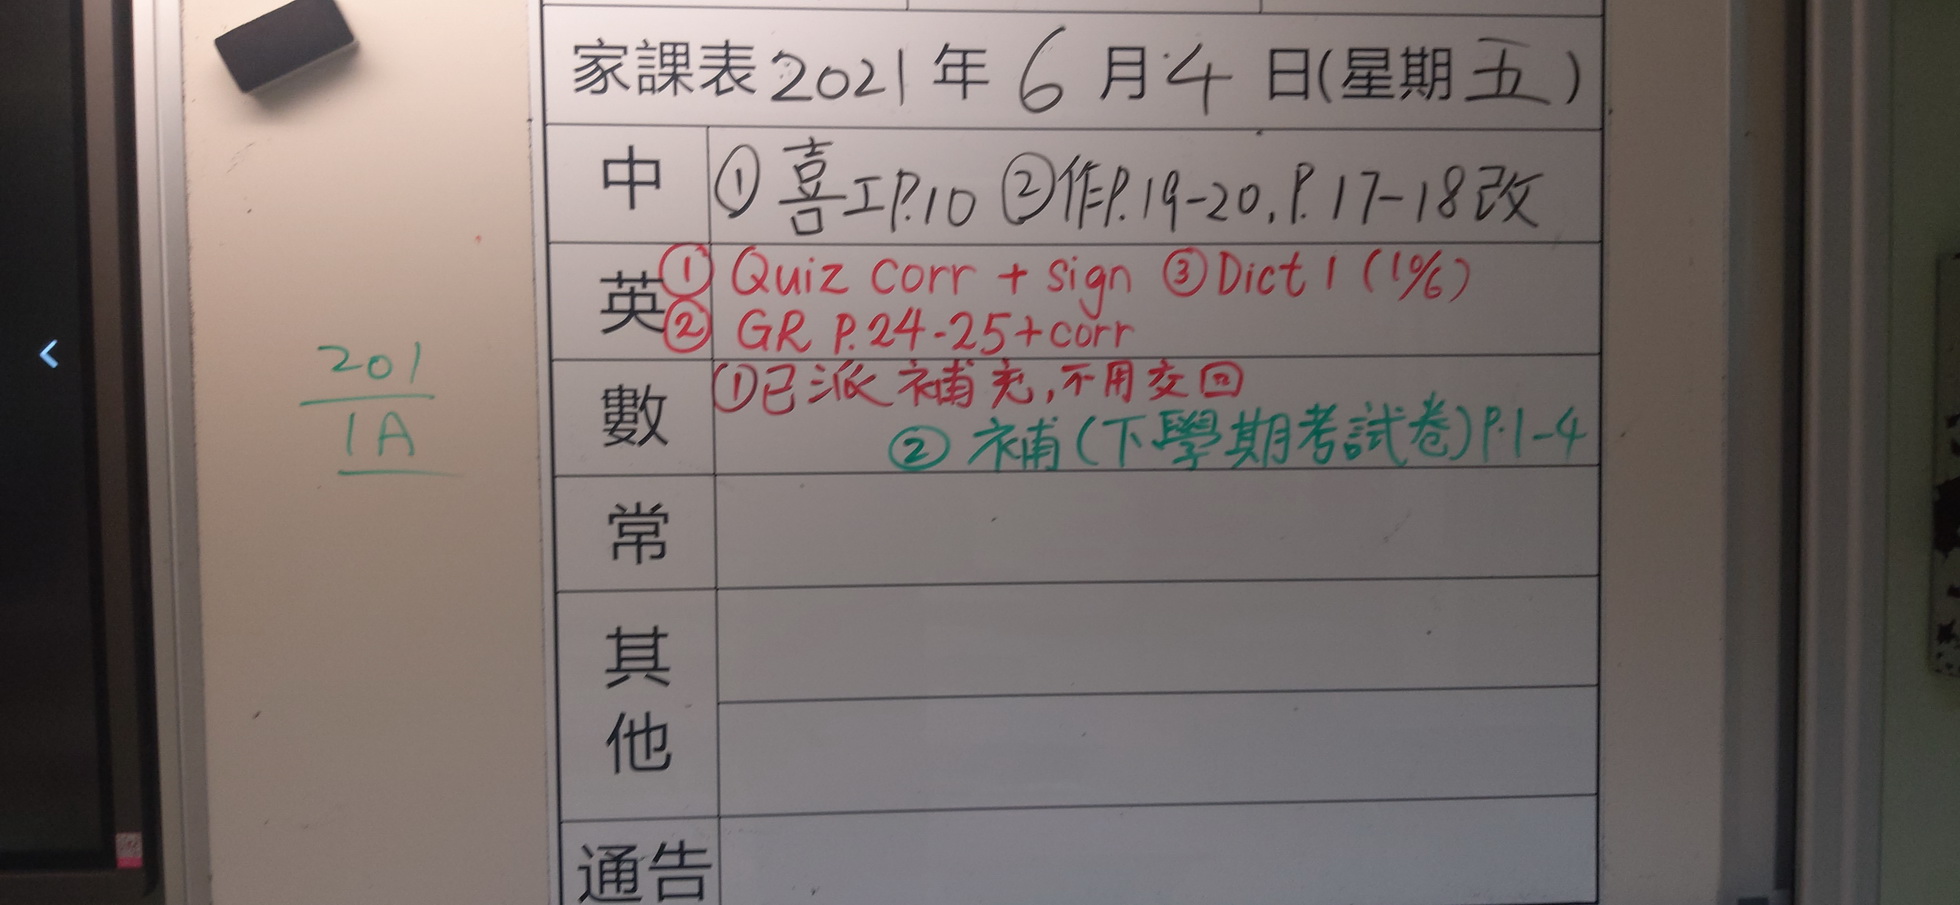 家課表2021年6月4日(星期五)
中 ①喜工P.10 ②作P.19-20, P.17-18改
英 ① Quiz corr + sign ③ Dict 1 (1%)
② GR P.24-25+corr
數 ①已派補充,不用交回
② 補(下學期考試卷)P.1-4
常
其他
通告
201
1A